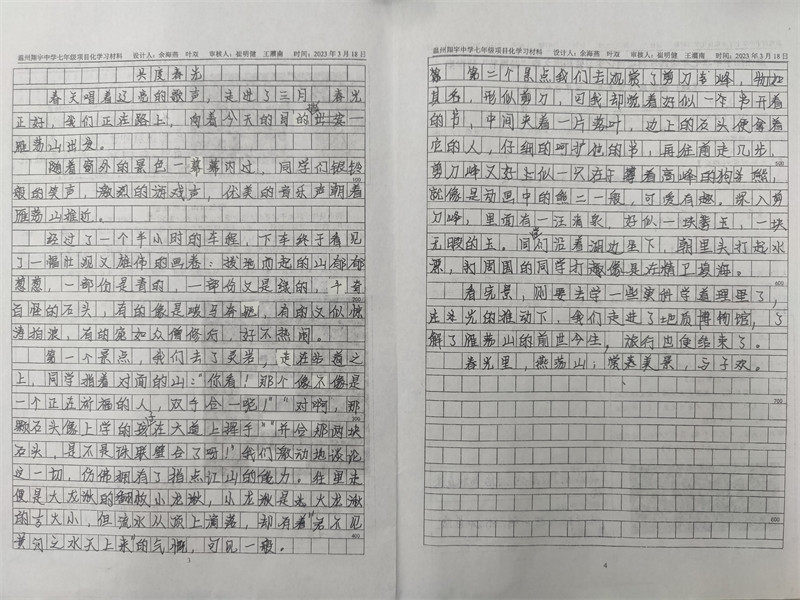 温州翔宇中学七年级项目化学习材料 设计人：余海燕 叶双 审核人：崔明健 王灏南 时间：2023年3月18日
共度春光
春天唱着辽亮的歌声，走进了三月。春光
正好，我们正走路上，向着今天的目的出发—
雁荡山出发。
随着窗外的景色一幕幕闪过，同学们银铃
般的笑声，激烈的游戏声，优美的音乐声朝着
雁荡山推近。
经过了一个半小时的车程，下车终于看见
了一幅壮观又雄伟的画卷：拔地而起的山郁郁
葱葱，一部份是青的，一部份又是绿的，千奇
百怪的石头，有的像是骏马奔驰，有的又似惊
涛拍浪，有的宛如众僧修行，好不热闹。
第一个景点，我们去了灵岩，走在站道之
上，同学指着对面的山："你看！那个像不像是
一个正在祈福的人，双手合一呢！""对啊，那
颗石头像上学的孩在大道上挥手""并合那两块
石头，是不是珠联璧合了呀！"我们激动地谈论
这一切，仿佛拥有了指点江山的能力。往里走
便是大龙湫的小龙湫，小龙湫是大龙湫
的大小，但流水从顶上滴落，却有着"君不见
黄河之水天上来"的气慨，可见一瘦。
3
温州翔宇中学七年级项目化学习材料 设计人：余海燕 叶双 审核人：崔明健 王灏南 时间：2023年3月18日
第二个景点我们去观赏了剪刀峰，物如
其名，形似剪刀，可我却觉着好似一本书开着
的书，中间夹着一片落叶，边上的石头便拿着
它的人，仔细的呵护他的书，再往前走几步，
剪刀峰又好似一只在尊着高峰的狗熊，
就像是动画中的熊二一般，可爱有趣。深入剪
刀峰，里面有一汪清泉，好似一块碧玉，一块
无暇的玉。同们沿着湖边坐下，朝里头打起水
漂，对周围的同学打趣像具左情卫填海。
看完景，则要去学一些实科学道理了，
在之光的推动下，我们走进了地质博物馆，了
解了雁荡山的前世今生，旅行也便结束了。
春光里，燕荡山；赏春美景，与子欢。
4